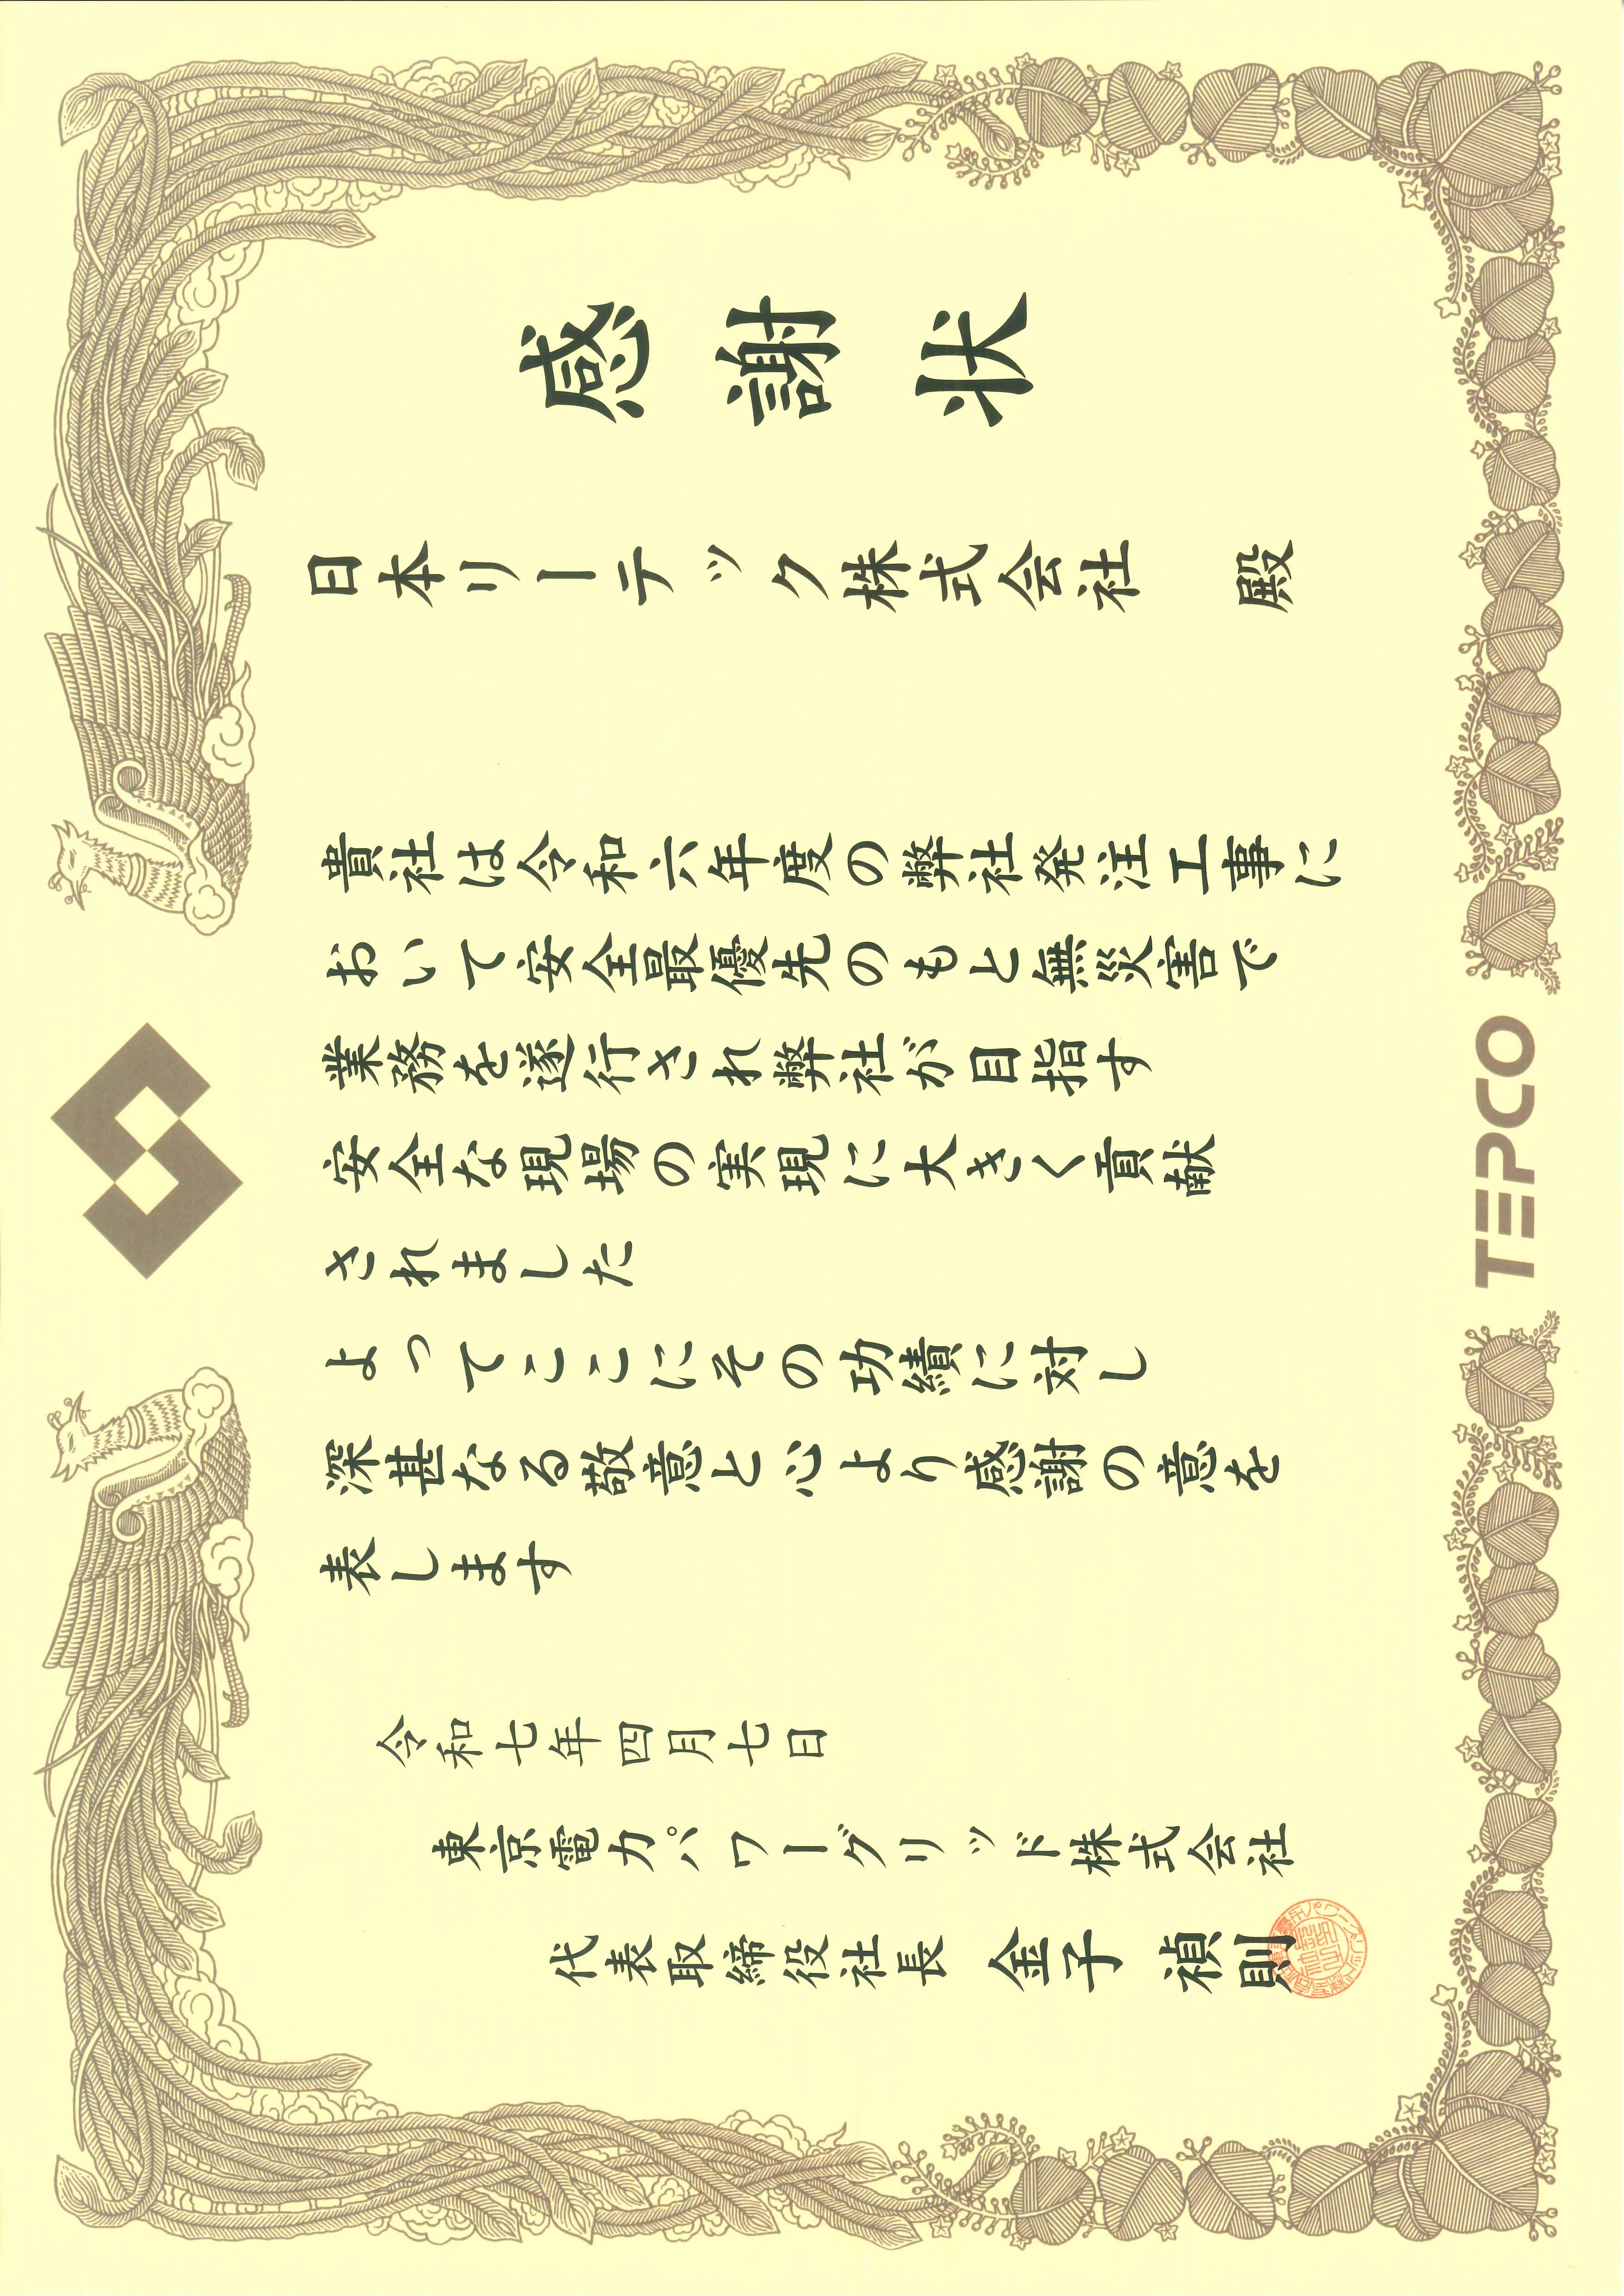 感謝状
日本リーテック株式会社 殿
貴社は令和六年度の弊社発注工事に
おいて安全最優先のもと無災害で
業務を遂行され弊社が目指す
安全な現場の実現に大きく貢献
されました
よってここにその功績に対し
深甚なる敬意と心より感謝の意を
表します
令和七年四月七日
東京電力パワーグリッド株式会社
代表取締役社長 金子 禎則
TEPCO